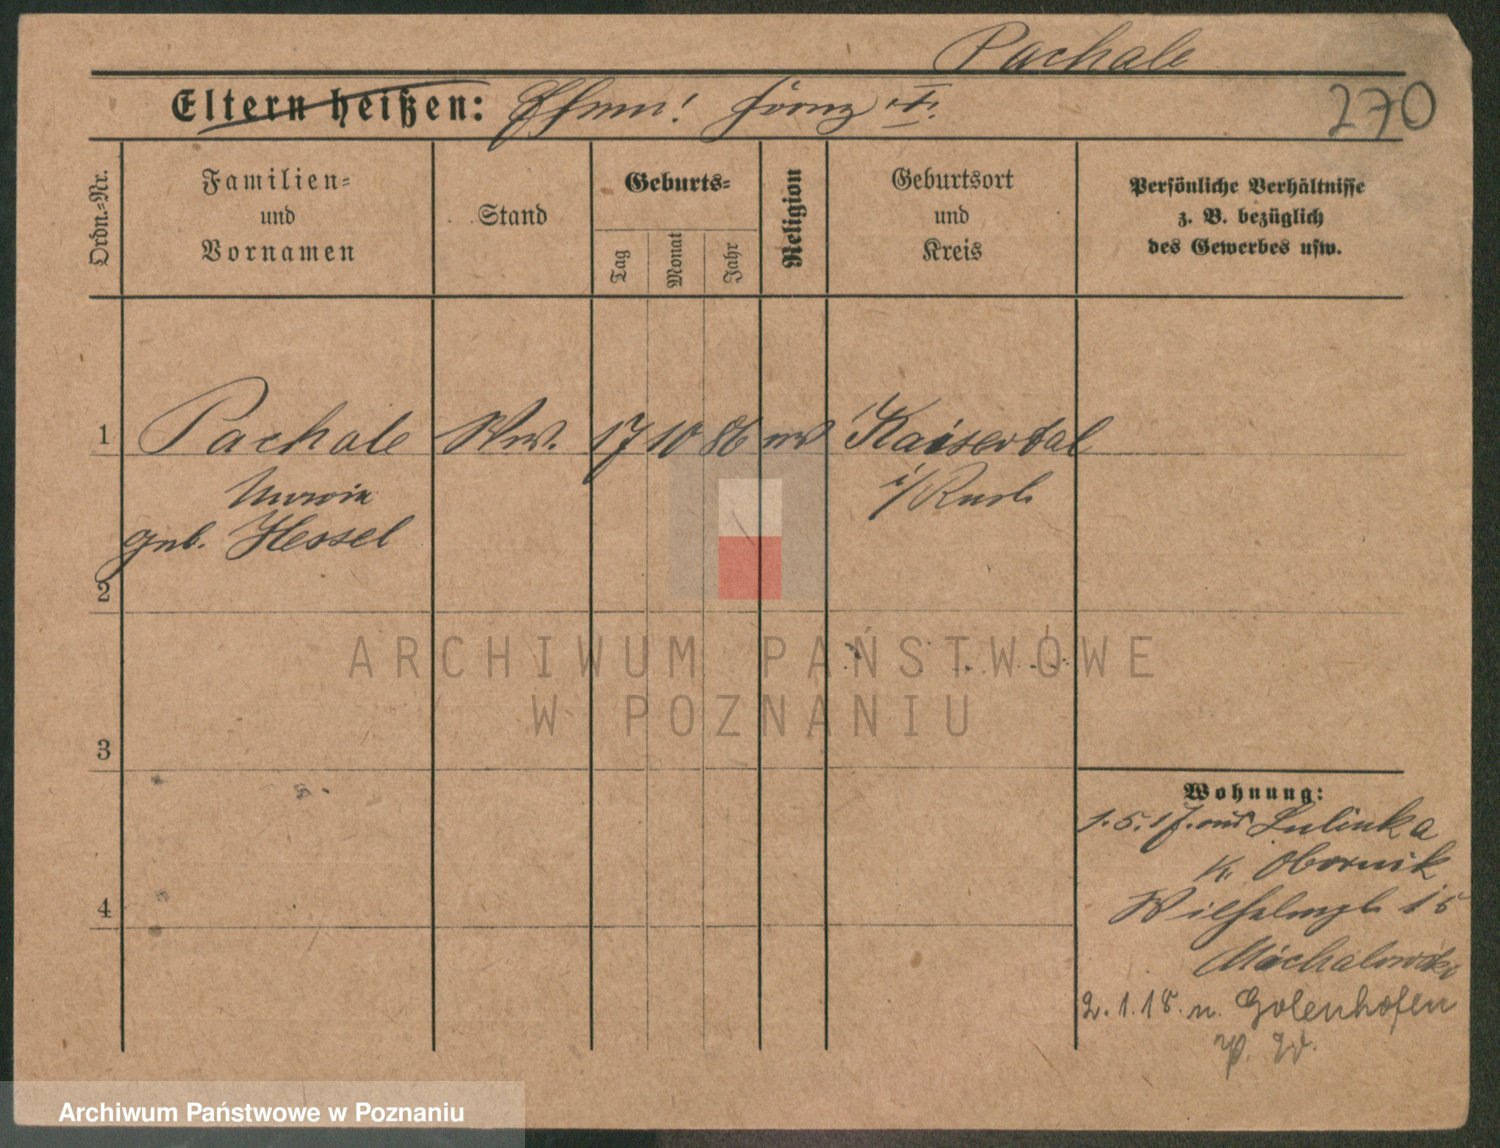 Pachale
Eltern heißen: Ehem! Franz †.
270
Ordn.=Nr.
Familien=
und
Vornamen
Stand
Geburts=
Tag
Monat
Jahr
Religion
Geburtsort
und
Kreis
Persönliche Verhältnisse
z. B. bezüglich
des Gewerbes usw.
1 Pachale Ww. 17 10 86 Kaisertal
Maria i/
geb. Hessel
2
ARCHIWUM PAŃSTWOWE
W POZNANIU
3
Wohnung:
1.5.17. aus Lulinka
Kr. Obornik
4
Wilhelmpl. 15
Michalowski
2.1.18. n. Golenhofen
P. W.
Archiwum Państwowe w Poznaniu